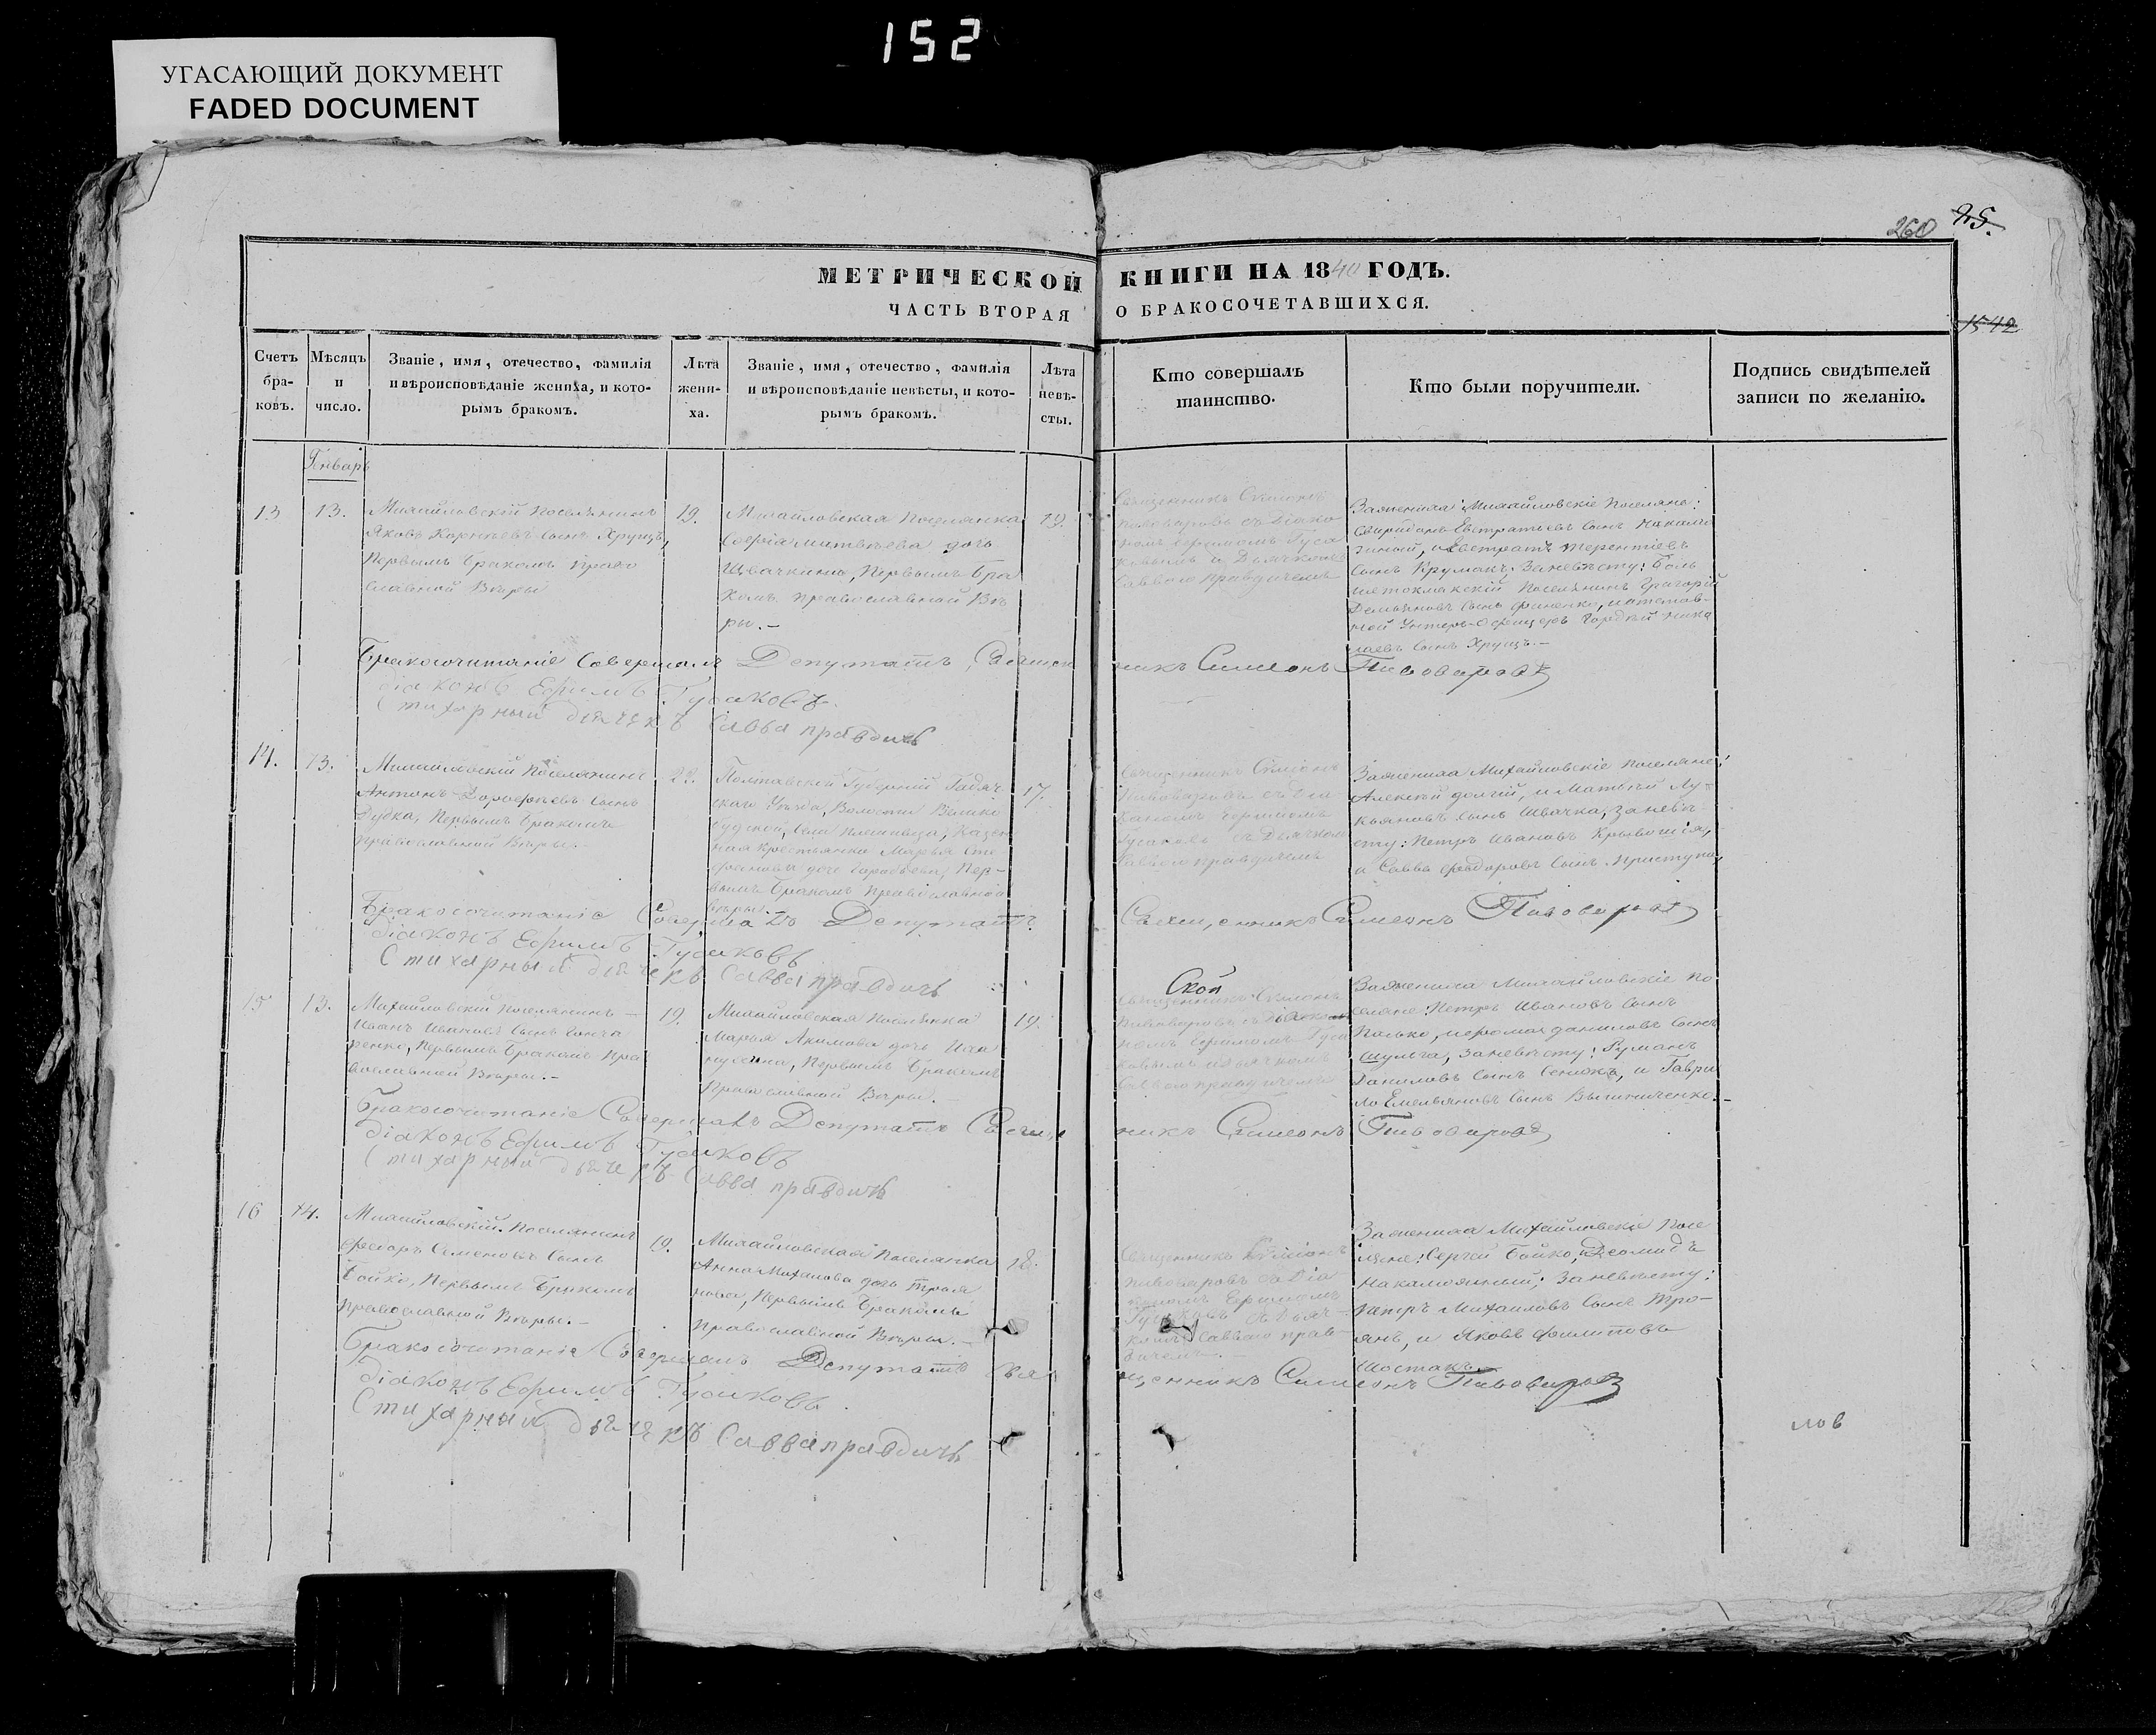 152
УГАСАЮЩИЙ ДОКУМЕНТ
FADED DOCUMENT
260 25.
МЕТРИЧЕСКОЙ КНИГИ НА 1840 ГОДЪ.
ЧАСТЬ ВТОРАЯ О БРАКОСОЧЕТАВШИХСЯ.
1542
Счетъ
бра-
ковъ.
Мѣсяцъ
и
число.
Званіе, имя, отечество, фамилія
и вѣроисповѣданіе жениха, и кото-
рымъ бракомъ.
Лѣта
жени-
ха.
Званіе, имя, отечество, фамилія
и вѣроисповѣданіе невѣсты, и кото-
рымъ бракомъ.
Лѣта
невѣ-
сты.
Кто совершалъ
таинство.
Кто были поручители.
Подпись свидѣтелей
записи по желанію.
Генварь
13
13.
Михайловскій Поселянинъ
Яковъ Корнѣевъ сынъ Хрущъ,
Первымъ бракомъ право
славной Вѣры
19.
Михайловская Поселянка
Матвѣева дочь
Швачкина, Первымъ бра
комъ православной Вѣ
ры.-
19.
Священникъ Симіонъ
Пивоваровъ съ Діако
номъ Ефимомъ Гуса
ковымъ и Дьячкомъ
Саввою Правдичемъ
Зажениха: Михайловскіе Поселяне:
Свиридонъ Евстратьевъ сынъ
и Евстратъ Терентіевъ
сынъ Заневѣсту: Боль
шетокмакскій Поселянинъ Григорій
Демьяновъ сынъ отстав-
ной Унтеръ-Офицеръ Гордѣй Нико
лаевъ сынъ Хрущъ.-
Бракосочитаніе Совершалъ Депутатъ, Священ никъ Симеонъ Пивоваровъ
діаконъ Ефимъ Гусаковъ.
Стихарный дьячекъ Савва правдичь
14.
13.
Михайловскій Поселянинъ
Антонъ Дорофѣевъ сынъ
Дубка, Первымъ бракомъ
православной Вѣры.-
22.
Полтавской Губерніи Гадяч
скаго Уѣзда, Волости
Казен
ная крестьянка Марья Сте
фанова дочь Пер-
вымъ бракомъ православной
вѣры.
17.
Священникъ Симіонъ
Пивоваровъ съ Діа
кономъ Ефимомъ
Гусаковъ съ Дьячкомъ
Саввою правдичемъ
Зажениха Михайловскіе Поселяне:
Алексѣй долгій, и Матвѣй Лу-
кьяновъ сынъ Швачка, заневѣ-
сту: Петръ Ивановъ Кривошія,
и Савва Федоровъ сынъ Приступа,
Бракосочитаніе Совершалъ Депутатъ Священникъ Симеонъ Пивоваровъ
діаконъ Ефимъ Гусаковъ
Стихарный дьячекъ Савва правдичь
15
13.
Михайловскій Поселянинъ
Иванъ Ивановъ сынъ Гонча
ренко, Первымъ бракомъ Пра
вославной Вѣры.-
19.
Михайловская Поселянка
Марья Акимова дочь
Первымъ бракомъ
Православной Вѣры.-
19.
Священникъ Симіонъ
Пивоваровъ съ Діако
номъ Ефимомъ Гуса
ковымъ и дьячкомъ
Саввою правдичемъ
Зажениха Михайловскіе По
селяне: Петръ Ивановъ сынъ
Даниловъ сынъ
Шульга, заневѣсту: Романъ
Даниловъ сынъ и Гаври
ло Емельяновъ сынъ
Бракосочитаніе Совершалъ Депутатъ Священ никъ Симеонъ Пивоваровъ
діаконъ Ефимъ Гусаковъ
Стихарный дьячекъ Савва правдичь
16
14.
Михайловскій Поселянинъ
Федоръ Семеновъ сынъ
Бойко, Первымъ бракомъ
Православной Вѣры.-
19.
Михайловская Поселянка
Анна Михайлова дочь Троя
нова, Первымъ бракомъ
Православной Вѣры.-
18.
Священникъ Симіонъ
Пивоваровъ съ Діа
кономъ Ефимомъ
Гусаковъ съ Дьяч-
комъ Саввою прав-
дичемъ.-
Зажениха Михайловскіе Посе
ляне: Сергѣй Бойко, и Деомидъ
Заневѣсту:
Петръ Михайловъ сынъ Тро-
янъ, и Яковъ Филиповъ
Шостакъ.
Бракосочитаніе Совершалъ Депутатъ Свя щенникъ Симеонъ Пивоваровъ
діаконъ Ефимъ Гусаковъ.
Стихарный дьячекъ Савва правдичь
лов